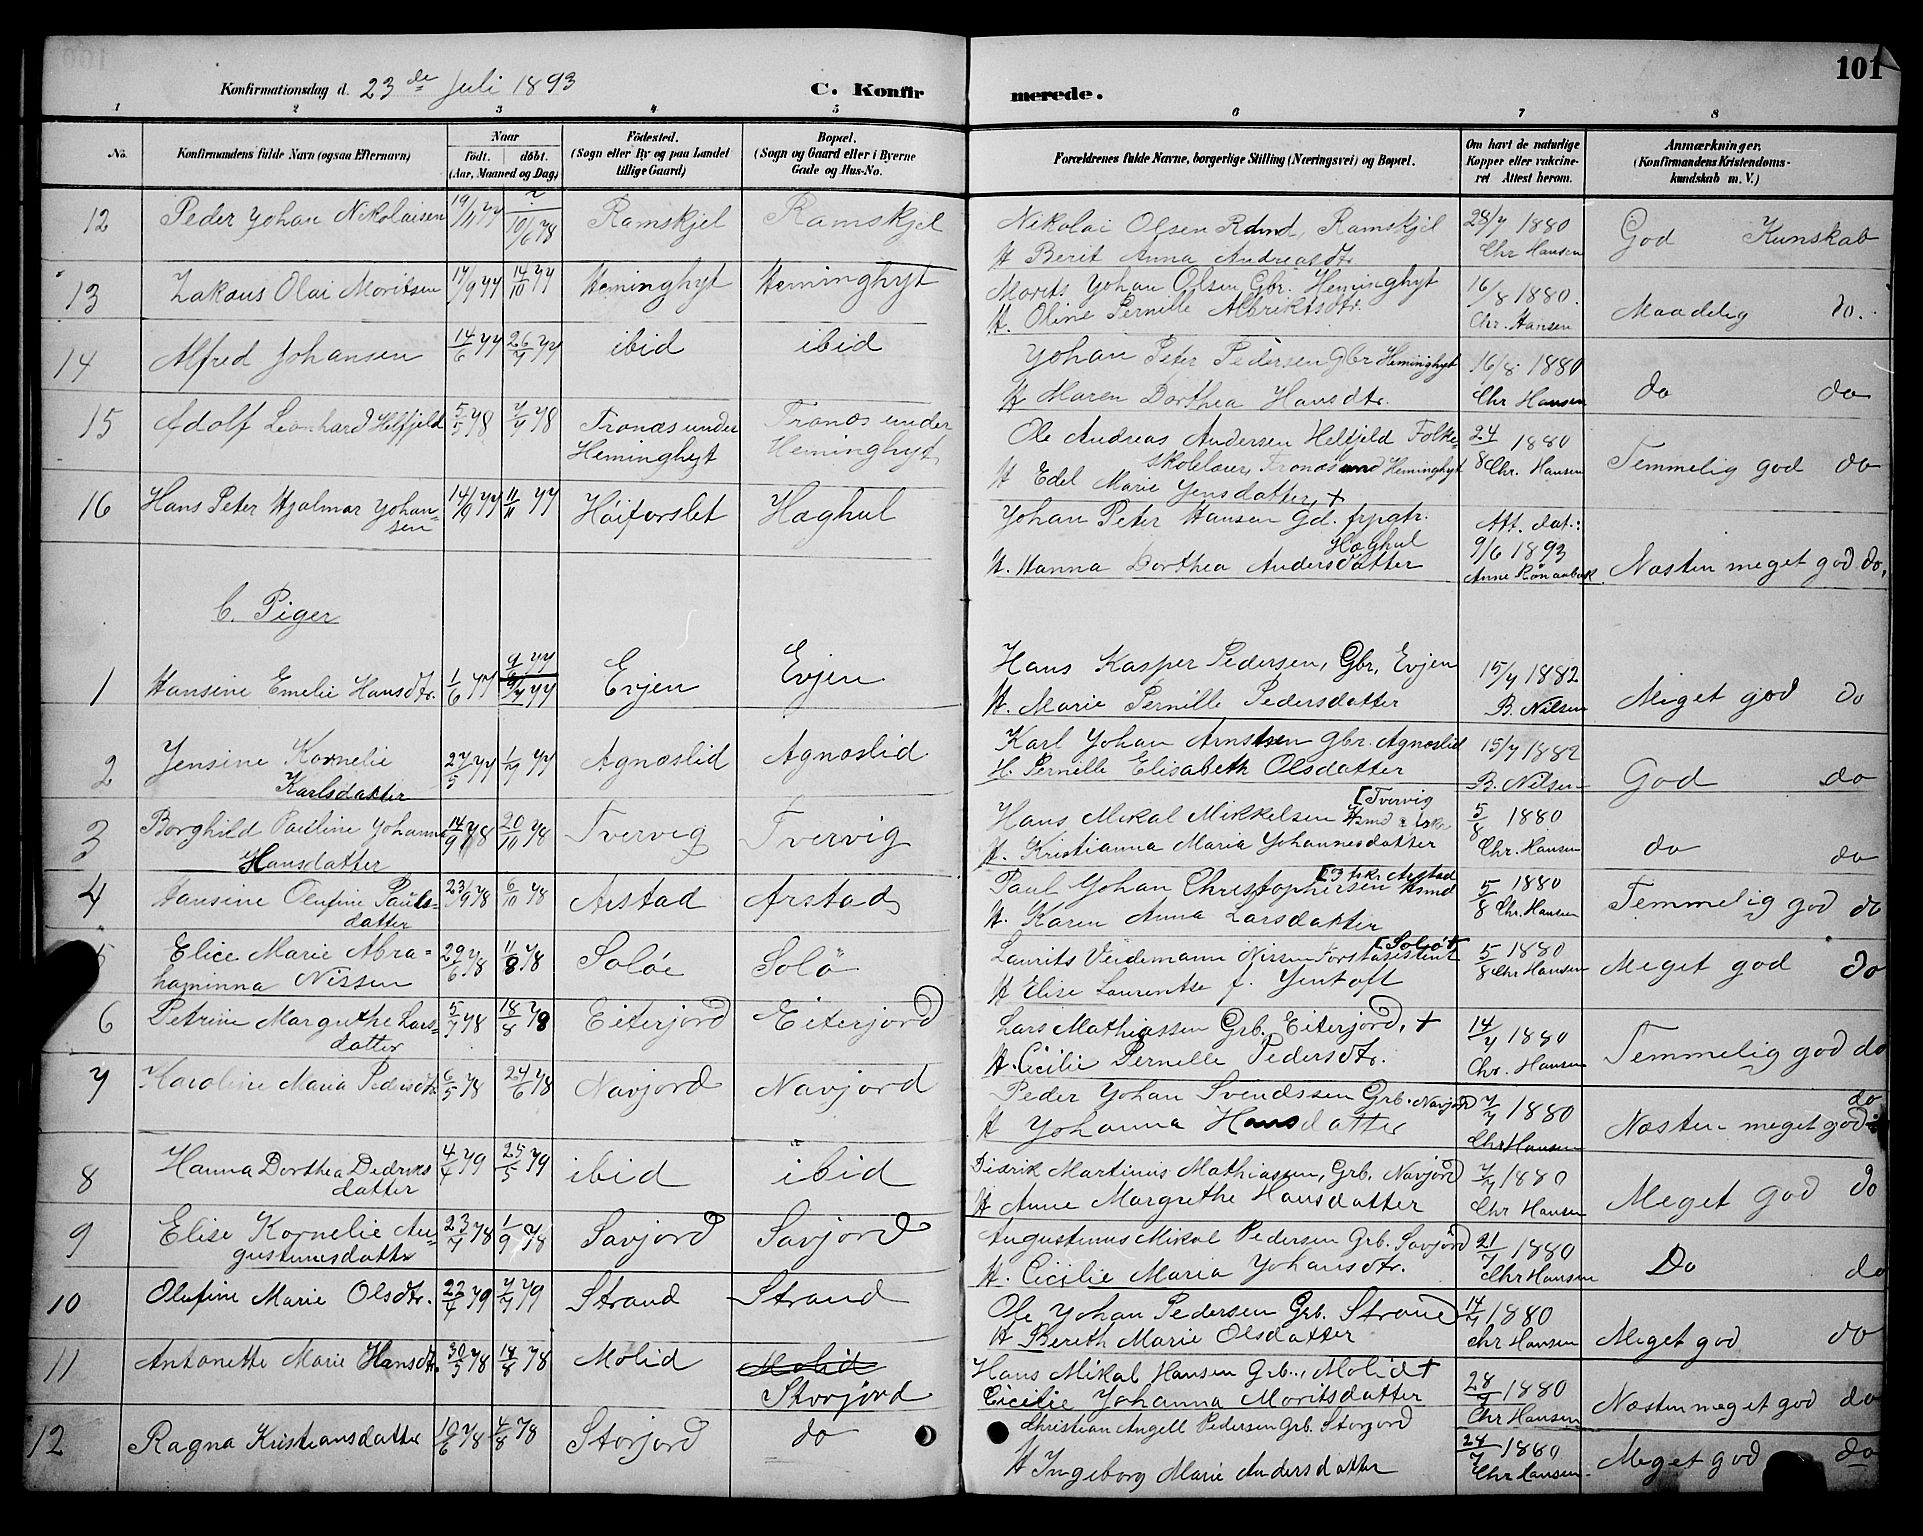 101
Konfirmationsdag d. 23de Juli 1893
C. Konfirmerede.
1 2 3 4 5 6 7 8
No.
Konfirmandens fulde Navn (ogsaa Efternavn)
Naar
født. døbt.
(Aar, Maaned og Dag)
Fødested.
(Sogn eller By og paa Landet
tillige Gaard)
Bopæl.
(Sogn og Gaard eller i Byerne
Gade og Hus-No.
Forældrenes fulde Navne, borgerlige Stilling (Næringsvei) og Bopæl.
Om havt de naturlige
Kopper eller vakcine-
ret Attest herom.
Anmærkninger.
(Konfirmandens Kristendoms-
kundskab m. V.)
12 Peder Johan Nikolaisen 19/11 77 10/6 78 Ramskjel Ramskjel Nikolai Olsen Rdmd, Ramskjel 28/7 1880 God Kunskab
H Berit Anna Andreasdtr. Chr Hansen
13 Zakæus Olai Moritsen 17/9 77 14/10 77 Heminghyt Heminghyt Morits Johan Olsen Gbr. Heminghyt 16/8 1880. Maadelig do.
H. Oline Pernille Albriktsdtr. Chr. Hansen
14 Alfred Johansen 14/6 77 26/7 77 ibid ibid Johan Peter Pedersen Gbr Heminghyt 16/8 1880 do do
H Maren Dorthea Hansdtr. Chr Hansen
15 Adolf Leonhard Helfjeld 5/5 78 7/7 78 Tronæs under Tronæs under Ole Andreas Andersen Helfjeld Folke= 24/8 1880 Temmelig god do
Heminghyt Heminghyt skolelærer, Tronæs und Heminghyt Chr. Hansen
H Edel Marie Jensdatter, +
16 Hans Peter Hjalmar Johan= 14/9 77 11/11 77 Höiforslet Hæghul Johan Peter Hansen Gd. frpgtr. Att. dat.: 9/6 1893 Næsten meget god do.
sen Hæghul
H. Hanna Dorthea Andersdatter Anne Rønaabæk
C. Piger
1 Hansine Emelie Hansdtr. 1/6 77 9/7 77 Evjen Evjen Hans Kasper Pedersen, Gbr, Evjen 15/7 1882 Meget god do
H. Marie Pernille Pedersdatter B. Nilsen
2 Jensine Kornelie 27/5 77 1/9 77 Agnæslid Agnæslid Karl Johan Arntsen Gbr. Agnæslid 15/7 1882 God do
Karlsdatter H. Pernille Elisabeth Olsdatter B. Nilsen
3 Borghild Pauline Johanna 14/9 78 20/10 78 Tvervig Tvervig Hans Mikal Mikkelsen [Tvervig 5/8 1880 do do
Hansdatter H. Kristianna Maria Johannesdatter Chr. Hansen
4 Hansine Olufine Pauls= 23/9 78 6/10 78 Arstad Arstad Paul Johan Christophersen Hsmd [Arstad 5/8 1880 Temmelig god do
datter H. Karen Anna Larsdatter Chr. Hansen
5 Elice Marie Abra= 29/6 78 11/8 78 Soløe Solö Laurits Veidemann Nissen Forstasistent [Solö + 5/8 1880 Meget god do
haminna Nissen H Elise Laurentse f. Jentoft Chr Hansen
6 Petrine Margrethe Lars= 5/7 78 18/8 78 Eiterjord Eiterjord Lars Mathiassen Grb. Eiterjord, + 14/7 1880 Temmelig god do
datter H. Cicilie Pernelle Pedersdtr. Chr. Hansen
7 Karoline Maria Pedersdtr 6/5 78 24/6 78 Navjord Navjord Peder Johan Svendssen Grb. Navjord 7/7 1880 Næsten meget god do
H Johanna Hansdatter Chr Hansen
8 Hanna Dorthea Dedriks 4/4 79 25/5 79 ibid ibid Didrik Martinus Mathiassen, Grb. Navjord 7/7 1880 Meget god do
datter H Anne Margrethe Hansdatter Chr Hansen
9 Elise Kornelie Au= 23/7 78 1/9 78 Savjord Savjord Augustinus Mikal Pedersen Grb. Savjord 21/7 1880 Do do
gustinusdatter H. Cicilie Maria Johansdtr. Chr Hansen
10 Olufine Marie Olsdtr. 22/4 79 7/7 79 Strand Strand Ole Johan Pedersen Grb. Strand 14/7 1880 Meget god do
H Bereth Marie Olsdatter Chr Hansen
11 Antonette Marie Hansdtr. 30/5 78 18/8 78 Molid Molid Storjord Hans Mikal Hansen Grb., Molid + 28/7 1880 Næsten meget god do
Cicilie Johanna Moritsdatter Chr Hansen
12 Ragna Kristiansdatter 10/6 78 4/8 78 Storjord do Christian Angell Pedersen Grb. Storjord 28/7 1880 Meget god do
H Ingeborg Marie Andersdatter Chr Hansen